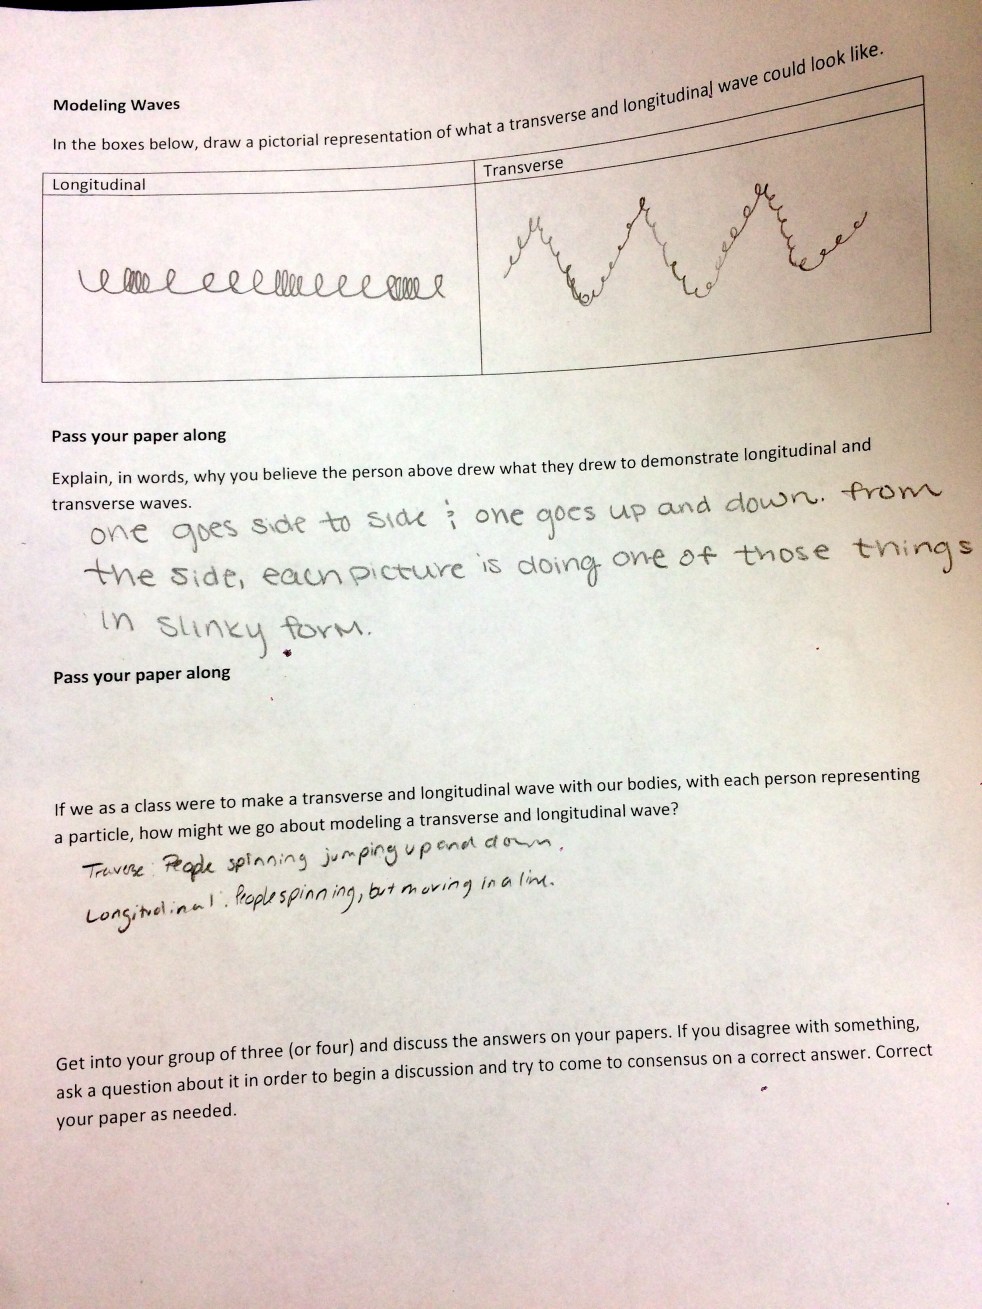 Modeling Waves
In the boxes below, draw a pictorial representation of what a transverse and longitudinal wave could look like.
Longitudinal
Transverse
Pass your paper along
Explain, in words, why you believe the person above drew what they drew to demonstrate longitudinal and
transverse waves.
one goes side to side & one goes up and down. from
the side, each picture is doing one of those things
in slinky form.
Pass your paper along
If we as a class were to make a transverse and longitudinal wave with our bodies, with each person representing
a particle, how might we go about modeling a transverse and longitudinal wave?
Traverse: People spinning jumping up and down.
Longitudinal: People spinning, but moving in a line.
Get into your group of three (or four) and discuss the answers on your papers. If you disagree with something,
ask a question about it in order to begin a discussion and try to come to consensus on a correct answer. Correct
your paper as needed.